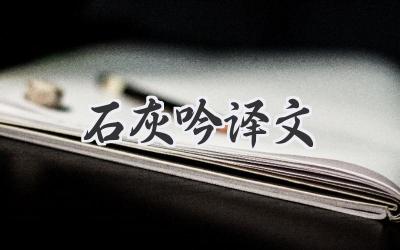 石灰吟译文